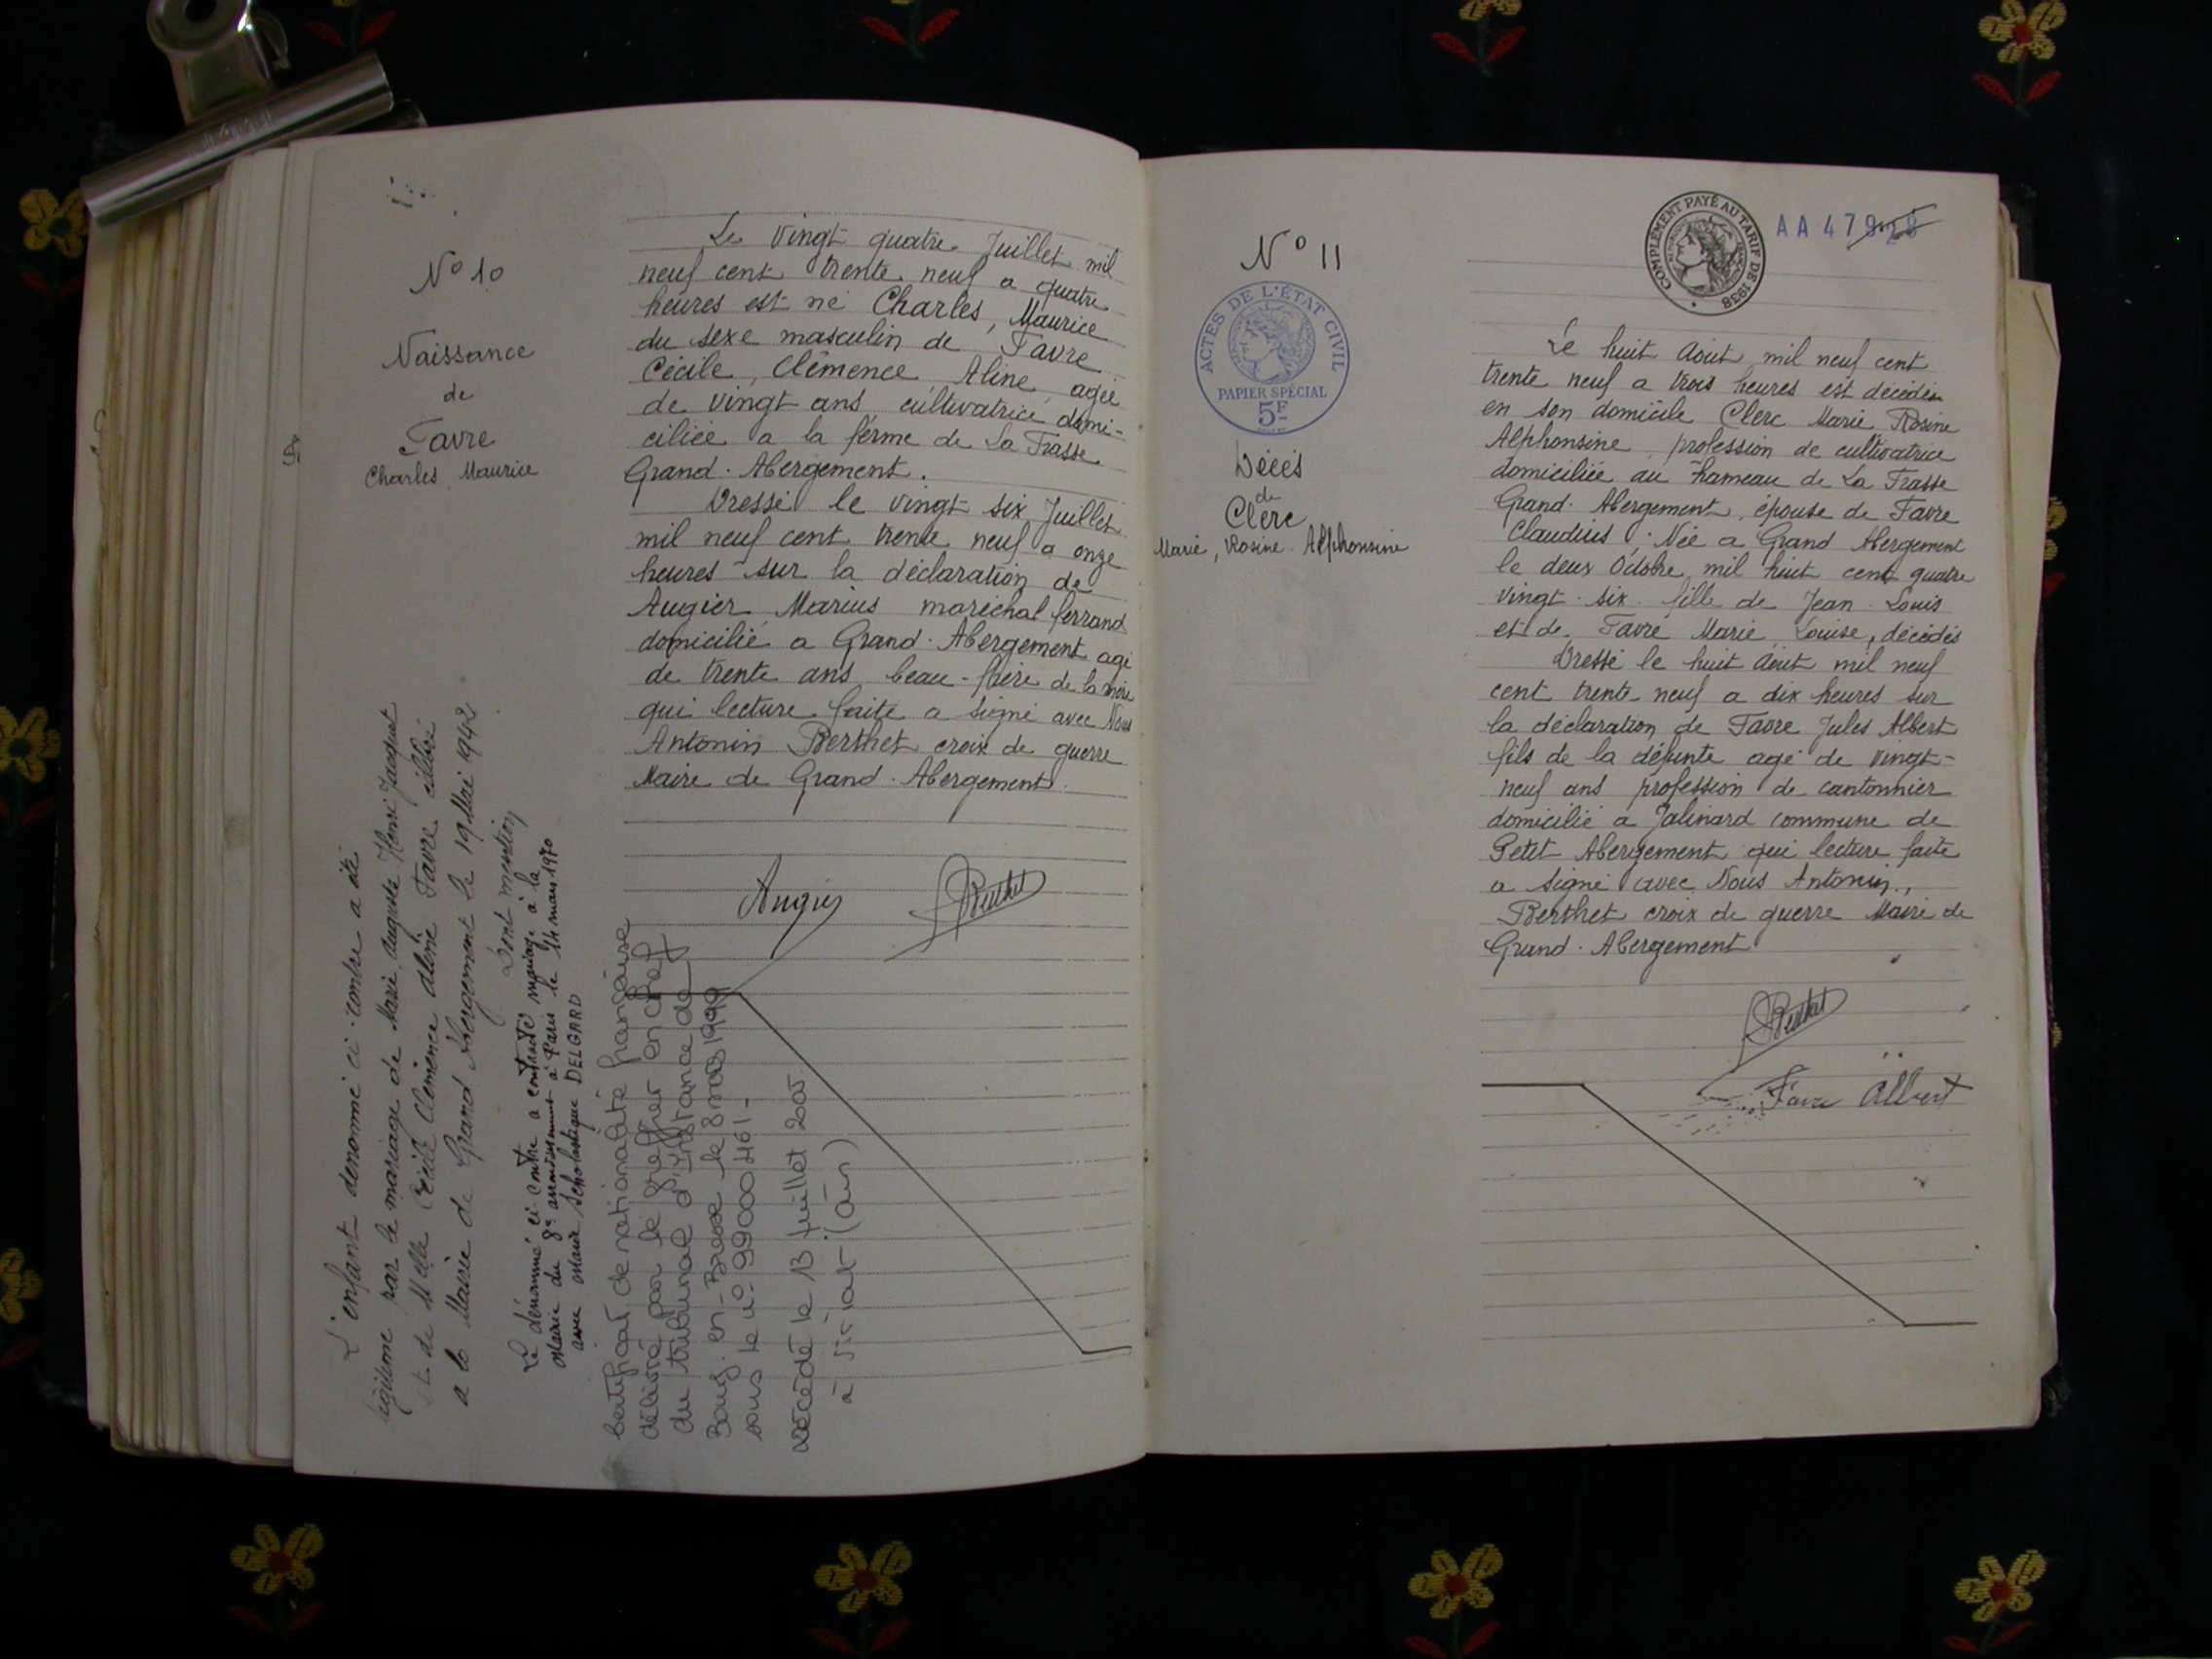 N° 10
Naissance
de
Favre
Charles, Maurice
Le vingt quatre Juillet mil
neuf cent trente neuf a quatre
heures est né Charles, Maurice
du sexe masculin de Favre
Cécile, Clémence, Aline, agée
de vingt ans, cultivatrice domi-
ciliée a la ferme de La Frasse
Grand-Abergement.
Dressé le vingt six Juillet
mil neuf cent trente neuf a onze
heures sur la déclaration de
Augier Marius maréchal ferrand
domicilié a Grand-Abergement agé
de trente ans beau-frère de la mère
qui lecture faite a signé avec Nous
Antonin Berthet croix de guerre
Maire de Grand-Abergement.
Augier
Berthet
L'enfant dénomé ci-contre a été
légitimé par le mariage de Marie Auguste Henri Jacquet
et de Melle Cécile Clémence Aline Favre célébré
a la Mairie de Grand Abergement le 19 Mai 1942
Dont mention
Le dénommé ci-contre a contracté mariage à la
Mairie du 8e arrondissement à Paris le 14 mars 1970
avec Marie Scholastique DELGARD
Certificat de nationalité française
délivré par le greffier en chef
du tribunal d'instance de
Bourg-en-Bresse le 8 mars 1999
sous le n° 99000461-
Décédé le 13 juillet 2005
à Viriat (Ain)
N° 11
ACTES DE L'ÉTAT CIVIL
PAPIER SPÉCIAL
5F
Décès
de
Clerc
Marie, Rosine Alphonsine
COMPLÉMENT PAYÉ AU TARIF DE 1938
AA 47928
Le huit Aout mil neuf cent
trente neuf a trois heures est décédée
en son domicile Clerc Marie Rosine
Alphonsine profession de cultivatrice
domiciliée au hameau de La Frasse
Grand-Abergement, épouse de Favre
Claudius. Née a Grand Abergement
le deux Octobre mil huit cent quatre
vingt-six. fille de Jean-Louis
et de Favre Marie Louise, décédés
Dressé le huit Aout mil neuf
cent trente neuf a dix heures sur
la déclaration de Favre Jules Albert
fils de la défunte agé de vingt-
neuf ans profession de cantonnier
domicilié a Jalinard commune de
Petit Abergement qui lecture faite
a signé avec Nous Antonin,
Berthet croix de guerre Maire de
Grand-Abergement
Berthet
Favre Albert